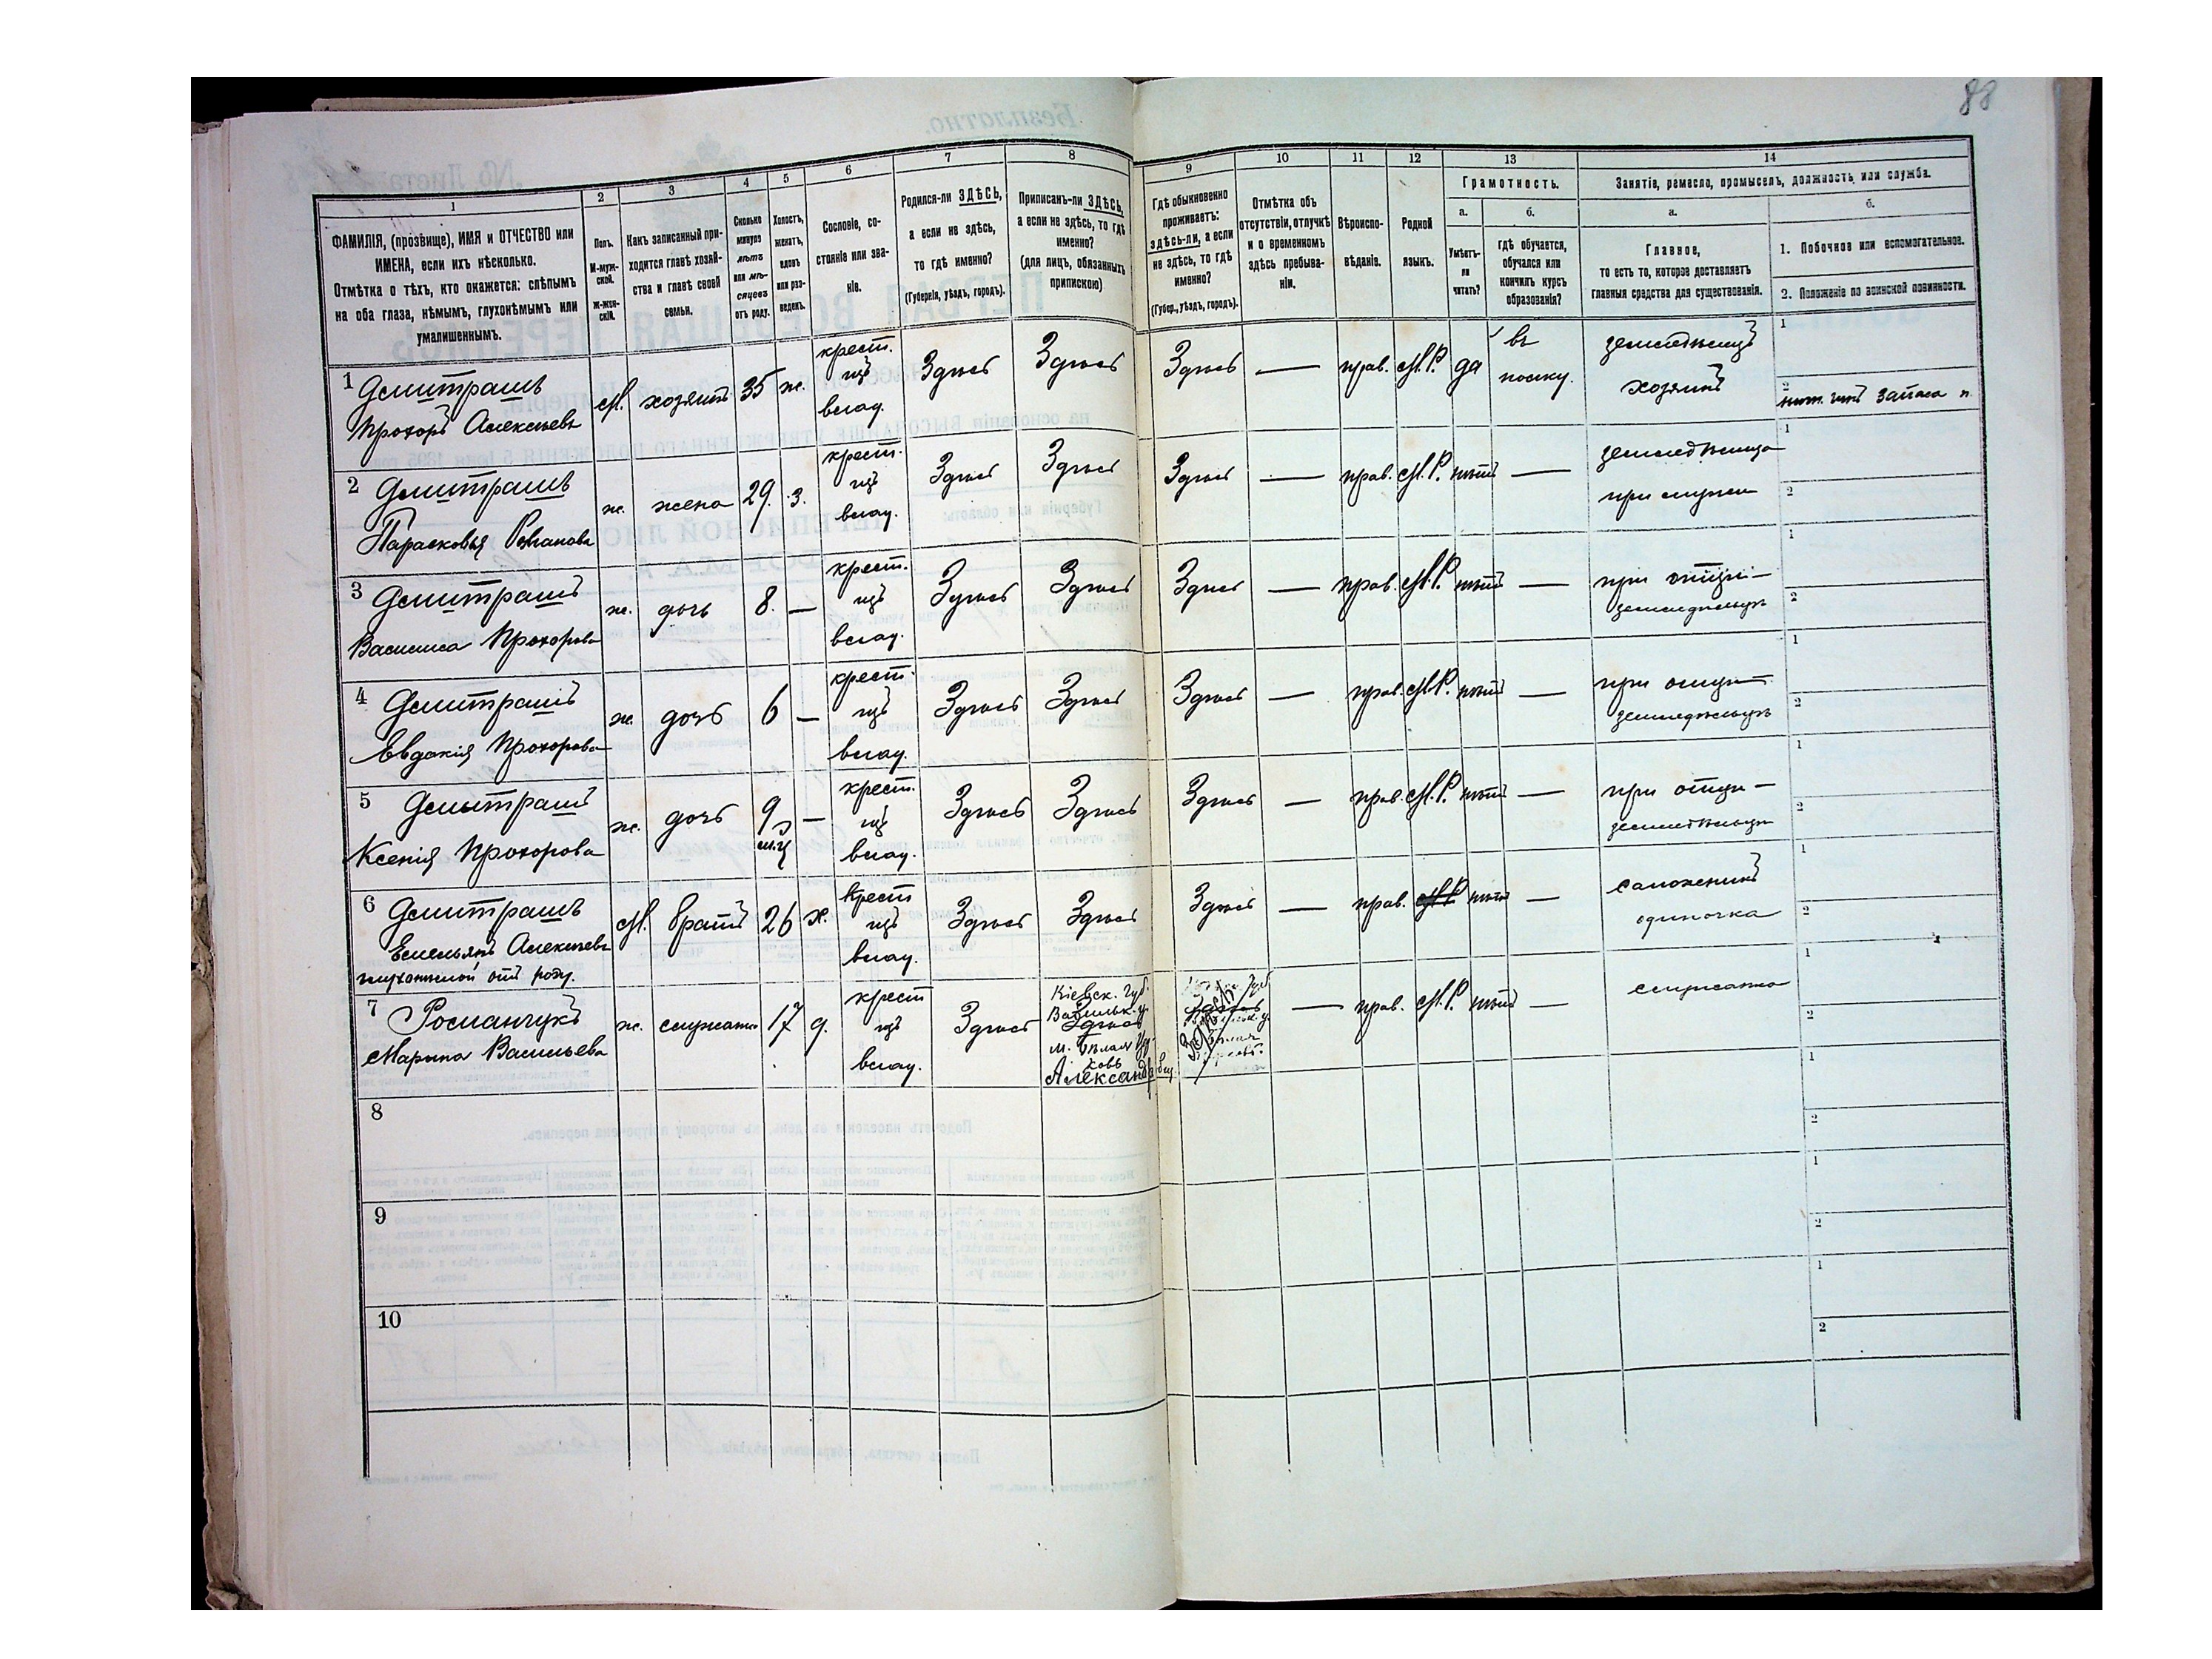 88
1
2
3
4
5
6
7
8
9
10
11
12
13
14
ФАМИЛІЯ, (прозвище), ИМЯ и ОТЧЕСТВО или
ИМЕНА, если ихъ нѣсколько.
Отмѣтка о тѣхъ, кто окажется: слѣпымъ
на оба глаза, нѣмымъ, глухонѣмымъ или
умалишеннымъ.
Полъ.
М-муж-
ской.
Ж-жен-
скій.
Какъ записанный при-
ходится главѣ хозяй-
ства и главѣ своей
семьи.
Сколько
минуло
лѣтъ
или мѣ-
сяцевъ
отъ роду.
Холостъ,
женатъ,
вдовъ
или раз-
веденъ.
Сословіе, со-
стояніе или зва-
ніе.
Родился-ли ЗДѢСЬ,
а если не здѣсь,
то гдѣ именно?
(Губернія, уѣздъ, городъ).
Приписанъ-ли ЗДѢСЬ,
а если не здѣсь, то гдѣ
именно?
(для лицъ, обязанныхъ
припискою)
Гдѣ обыкновенно
проживаетъ:
здѣсь-ли, а если
не здѣсь, то гдѣ
именно?
(Губер., уѣздъ, городъ).
Отмѣтка объ
отсутствіи, отлучкѣ
и о временномъ
здѣсь пребыва-
ніи.
Вѣроиспо-
вѣданіе.
Родной
языкъ.
Грамотность.
а.
Умѣетъ-
ли
читать?
б.
Гдѣ обучается,
обучался или
кончилъ курсъ
образованія?
Занятіе, ремесло, промыселъ, должность или служба.
а.
Главное,
то есть то, которое доставляетъ
главныя средства для существованія.
б.
1. Побочное или вспомогательное.
2. Положеніе по воинской повинности.
1 Дмитрашъ
Прохоръ Алексѣевъ
М. хозяинъ 35 ж.
крест.
изъ
влад.
Здѣсь Здѣсь Здѣсь — прав. М.Р. да
въ
полку.
земледѣлецъ
хозяинъ
1
2
ниж. чинъ запаса
2 Дмитрашъ
Парасковья Романова
ж. жена 29. з.
крест.
изъ
влад.
Здѣсь Здѣсь Здѣсь — прав. М.Р. нѣтъ —
земледѣлица
при мужѣ
1
2
3 Дмитрашъ
Василиса Прохорова
ж. дочь 8. —
крест.
изъ
влад.
Здѣсь Здѣсь Здѣсь — прав. М.Р. нѣтъ —
при отцѣ —
земледѣльцѣ
1
2
4 Дмитрашъ
Евдокія Прохорова
ж. дочь 6 —
крест.
изъ
влад.
Здѣсь Здѣсь Здѣсь — прав. М.Р. нѣтъ —
при отцѣ —
земледѣльцѣ
1
2
5 Дмытрашъ
Ксенія Прохорова
ж. дочь 9
—
крест.
изъ
влад.
Здѣсь Здѣсь Здѣсь — прав. М.Р. нѣтъ —
при отцѣ —
земледѣльцѣ
1
2
6 Дмитрашъ
Емельянъ Алексѣевъ
глухонѣмой отъ роду.
М. братъ 26 х.
крест
изъ
влад.
Здѣсь Здѣсь Здѣсь — прав. М.Р. нѣтъ —
сапожникъ
одиночка
1
2
7 Романчукъ
Марына Васильева
ж. служанка 17 д.
крест
изъ
влад.
Здѣсь
Кіевск. губ.
Васильк. у.
Здѣсь
м. Бѣлая Цер-
ковь
Александр
— прав. М.Р. нѣтъ —
служанка
1
2
8
1
2
9
1
2
10
1
2